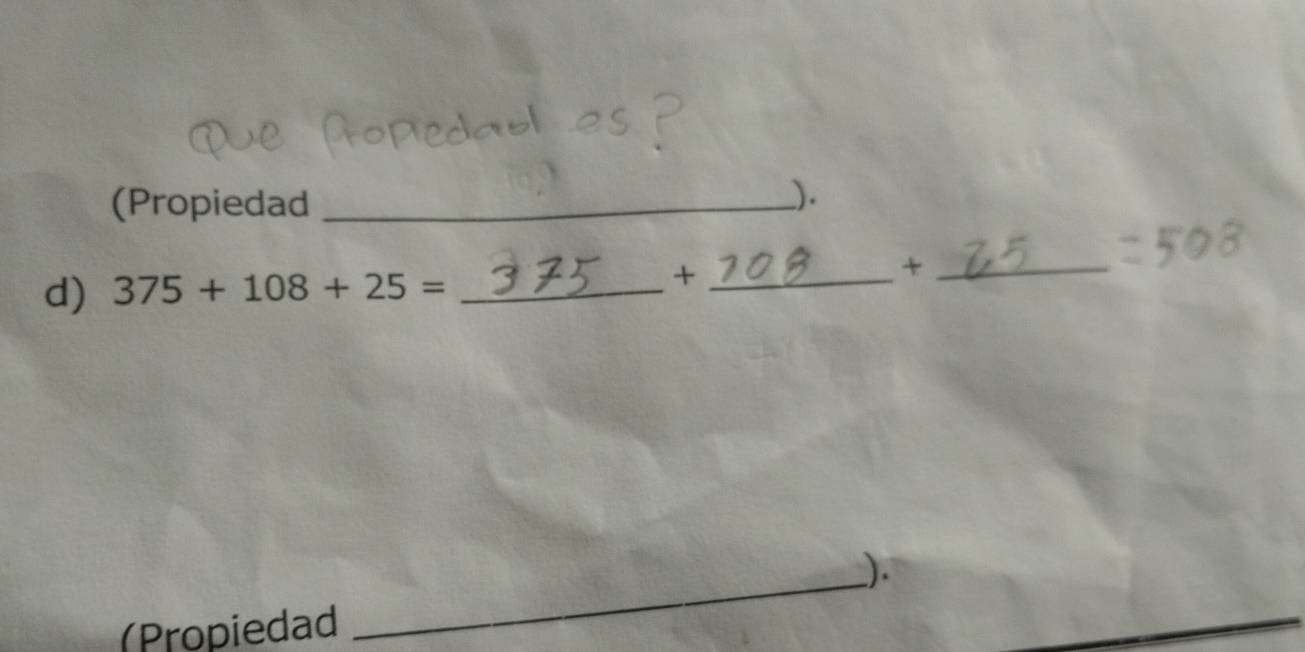 Que Propiedad es?
(Propiedad ____________).
d) 375 + 108 + 25 = 375 + 108 + 25 = 508
(Propiedad ____________).